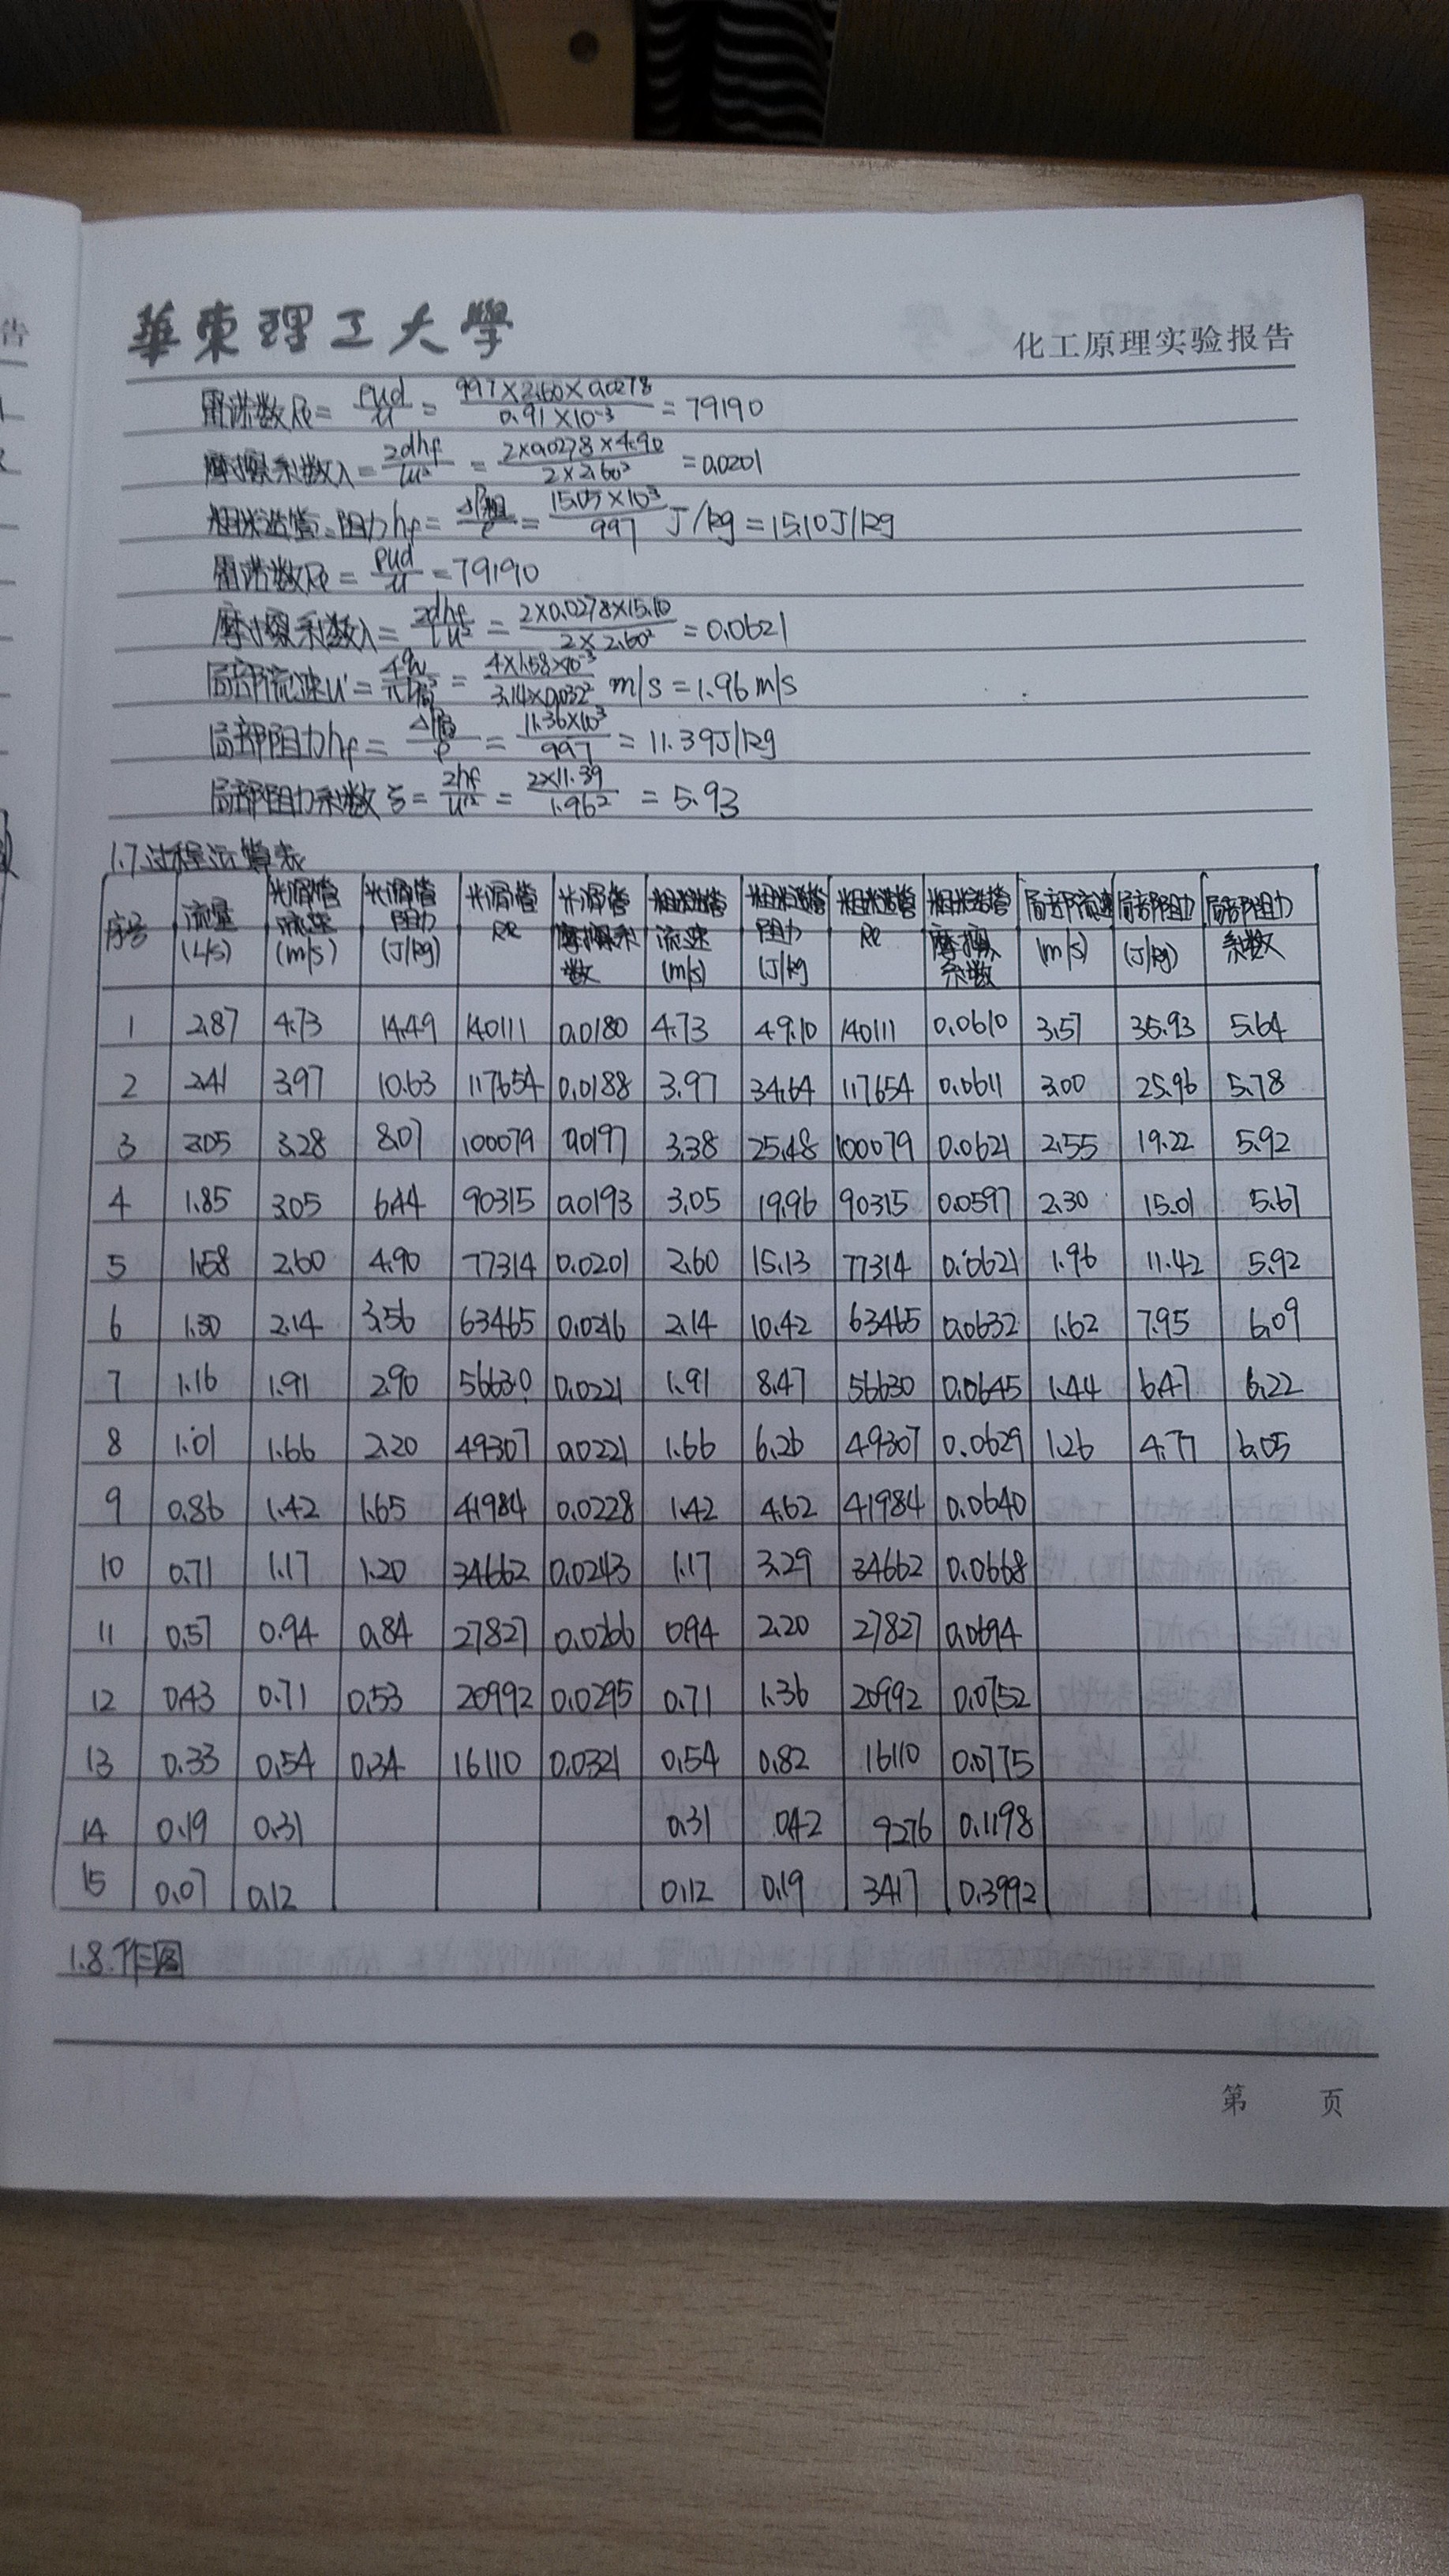 華東理工大學
化工原理实验报告
雷诺数Re = ρud/μ = 997×2.60×0.0278/0.91×10⁻³ = 79190
摩擦系数λ = 2dhf/lu² = 2×0.0278×4.90/2×2.60² = 0.0201
粗糙管:阻力hf = ΔP粗/ρ = 15.05×10³/997 J/kg = 15.10J/kg
雷诺数Re = ρud/μ = 79190
摩擦系数λ = 2dhf/lu² = 2×0.0278×15.10/2×2.60² = 0.0621
局部流速u' = 4qv/πd局² = 4×1.58×10⁻³/3.14×0.032² m/s = 1.96m/s
局部阻力hf = ΔP局/ρ = 11.36×10³/997 = 11.39J/kg
局部阻力系数ξ = 2hf/u'² = 2×11.39/1.96² = 5.93
1.7.过程运算表
序号 流量(L/s) 光滑管流速(m/s) 光滑管阻力(J/kg) 光滑管Re 光滑管摩擦系数 粗糙管流速(m/s) 粗糙管阻力(J/kg 粗糙管Re 粗糙管摩擦系数 局部流速(m/s) 局部阻力(J/kg) 局部阻力系数
1 2.87 4.73 14.49 140111 0.0180 4.73 49.10 140111 0.0610 3.57 35.93 5.64
2 2.41 3.97 10.63 117654 0.0188 3.97 34.64 117654 0.0611 3.00 25.96 5.78
3 2.05 3.28 8.07 100079 0.0197 3.38 25.48 100079 0.0621 2.55 19.22 5.92
4 1.85 3.05 6.44 90315 0.0193 3.05 19.96 90315 0.0597 2.30 15.01 5.67
5 1.58 2.60 4.90 77314 0.0201 2.60 15.13 77314 0.0621 1.96 11.42 5.92
6 1.30 2.14 3.56 63465 0.0216 2.14 10.42 63465 0.0632 1.62 7.95 6.09
7 1.16 1.91 2.90 56630 0.0221 1.91 8.47 56630 0.0645 1.44 6.47 6.22
8 1.01 1.66 2.20 49307 0.0221 1.66 6.26 49307 0.0629 1.26 4.77 6.05
9 0.86 1.42 1.65 41984 0.0228 1.42 4.62 41984 0.0640
10 0.71 1.17 1.20 34662 0.0243 1.17 3.29 34662 0.0668
11 0.57 0.94 0.84 27827 0.0266 0.94 2.20 27827 0.0694
12 0.43 0.71 0.53 20992 0.0295 0.71 1.36 20992 0.0752
13 0.33 0.54 0.34 16110 0.0321 0.54 0.82 16110 0.0775
14 0.19 0.31 0.31 0.42 9276 0.1198
15 0.07 0.12 0.12 0.19 3417 0.3992
1.8.作图
第 页